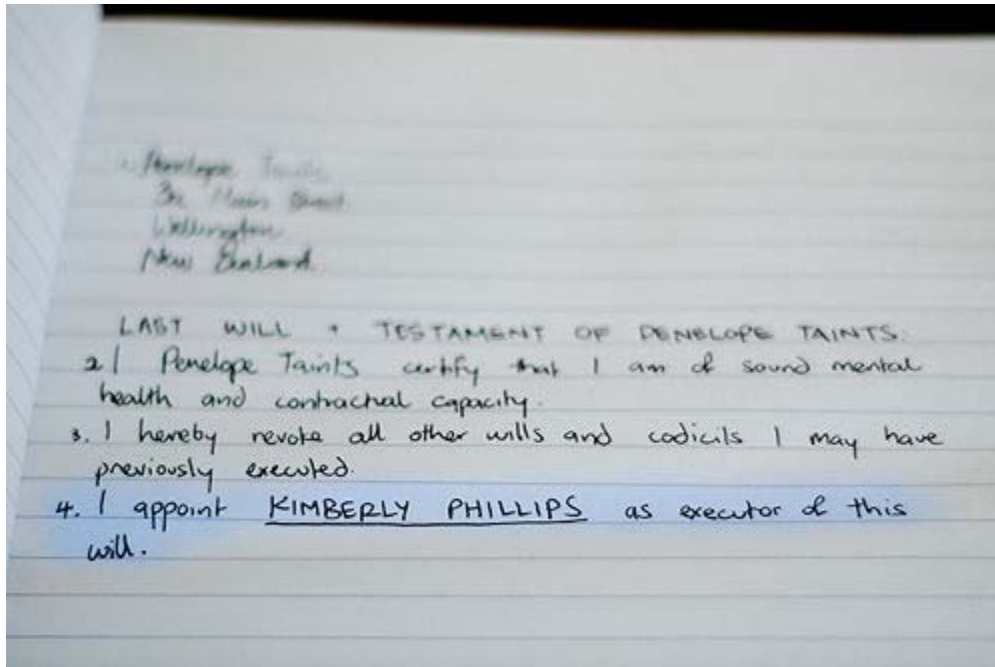 Penelope Taints
32 Main Street
Wellington
New Zealand
LAST WILL + TESTAMENT OF PENELOPE TAINTS.
2 I Penelope Taints certify that I am of sound mental
health and contractual capacity.
3. I hereby revoke all other wills and codicils I may have
previously executed.
4. I appoint KIMBERLY PHILLIPS as executor of this
will.